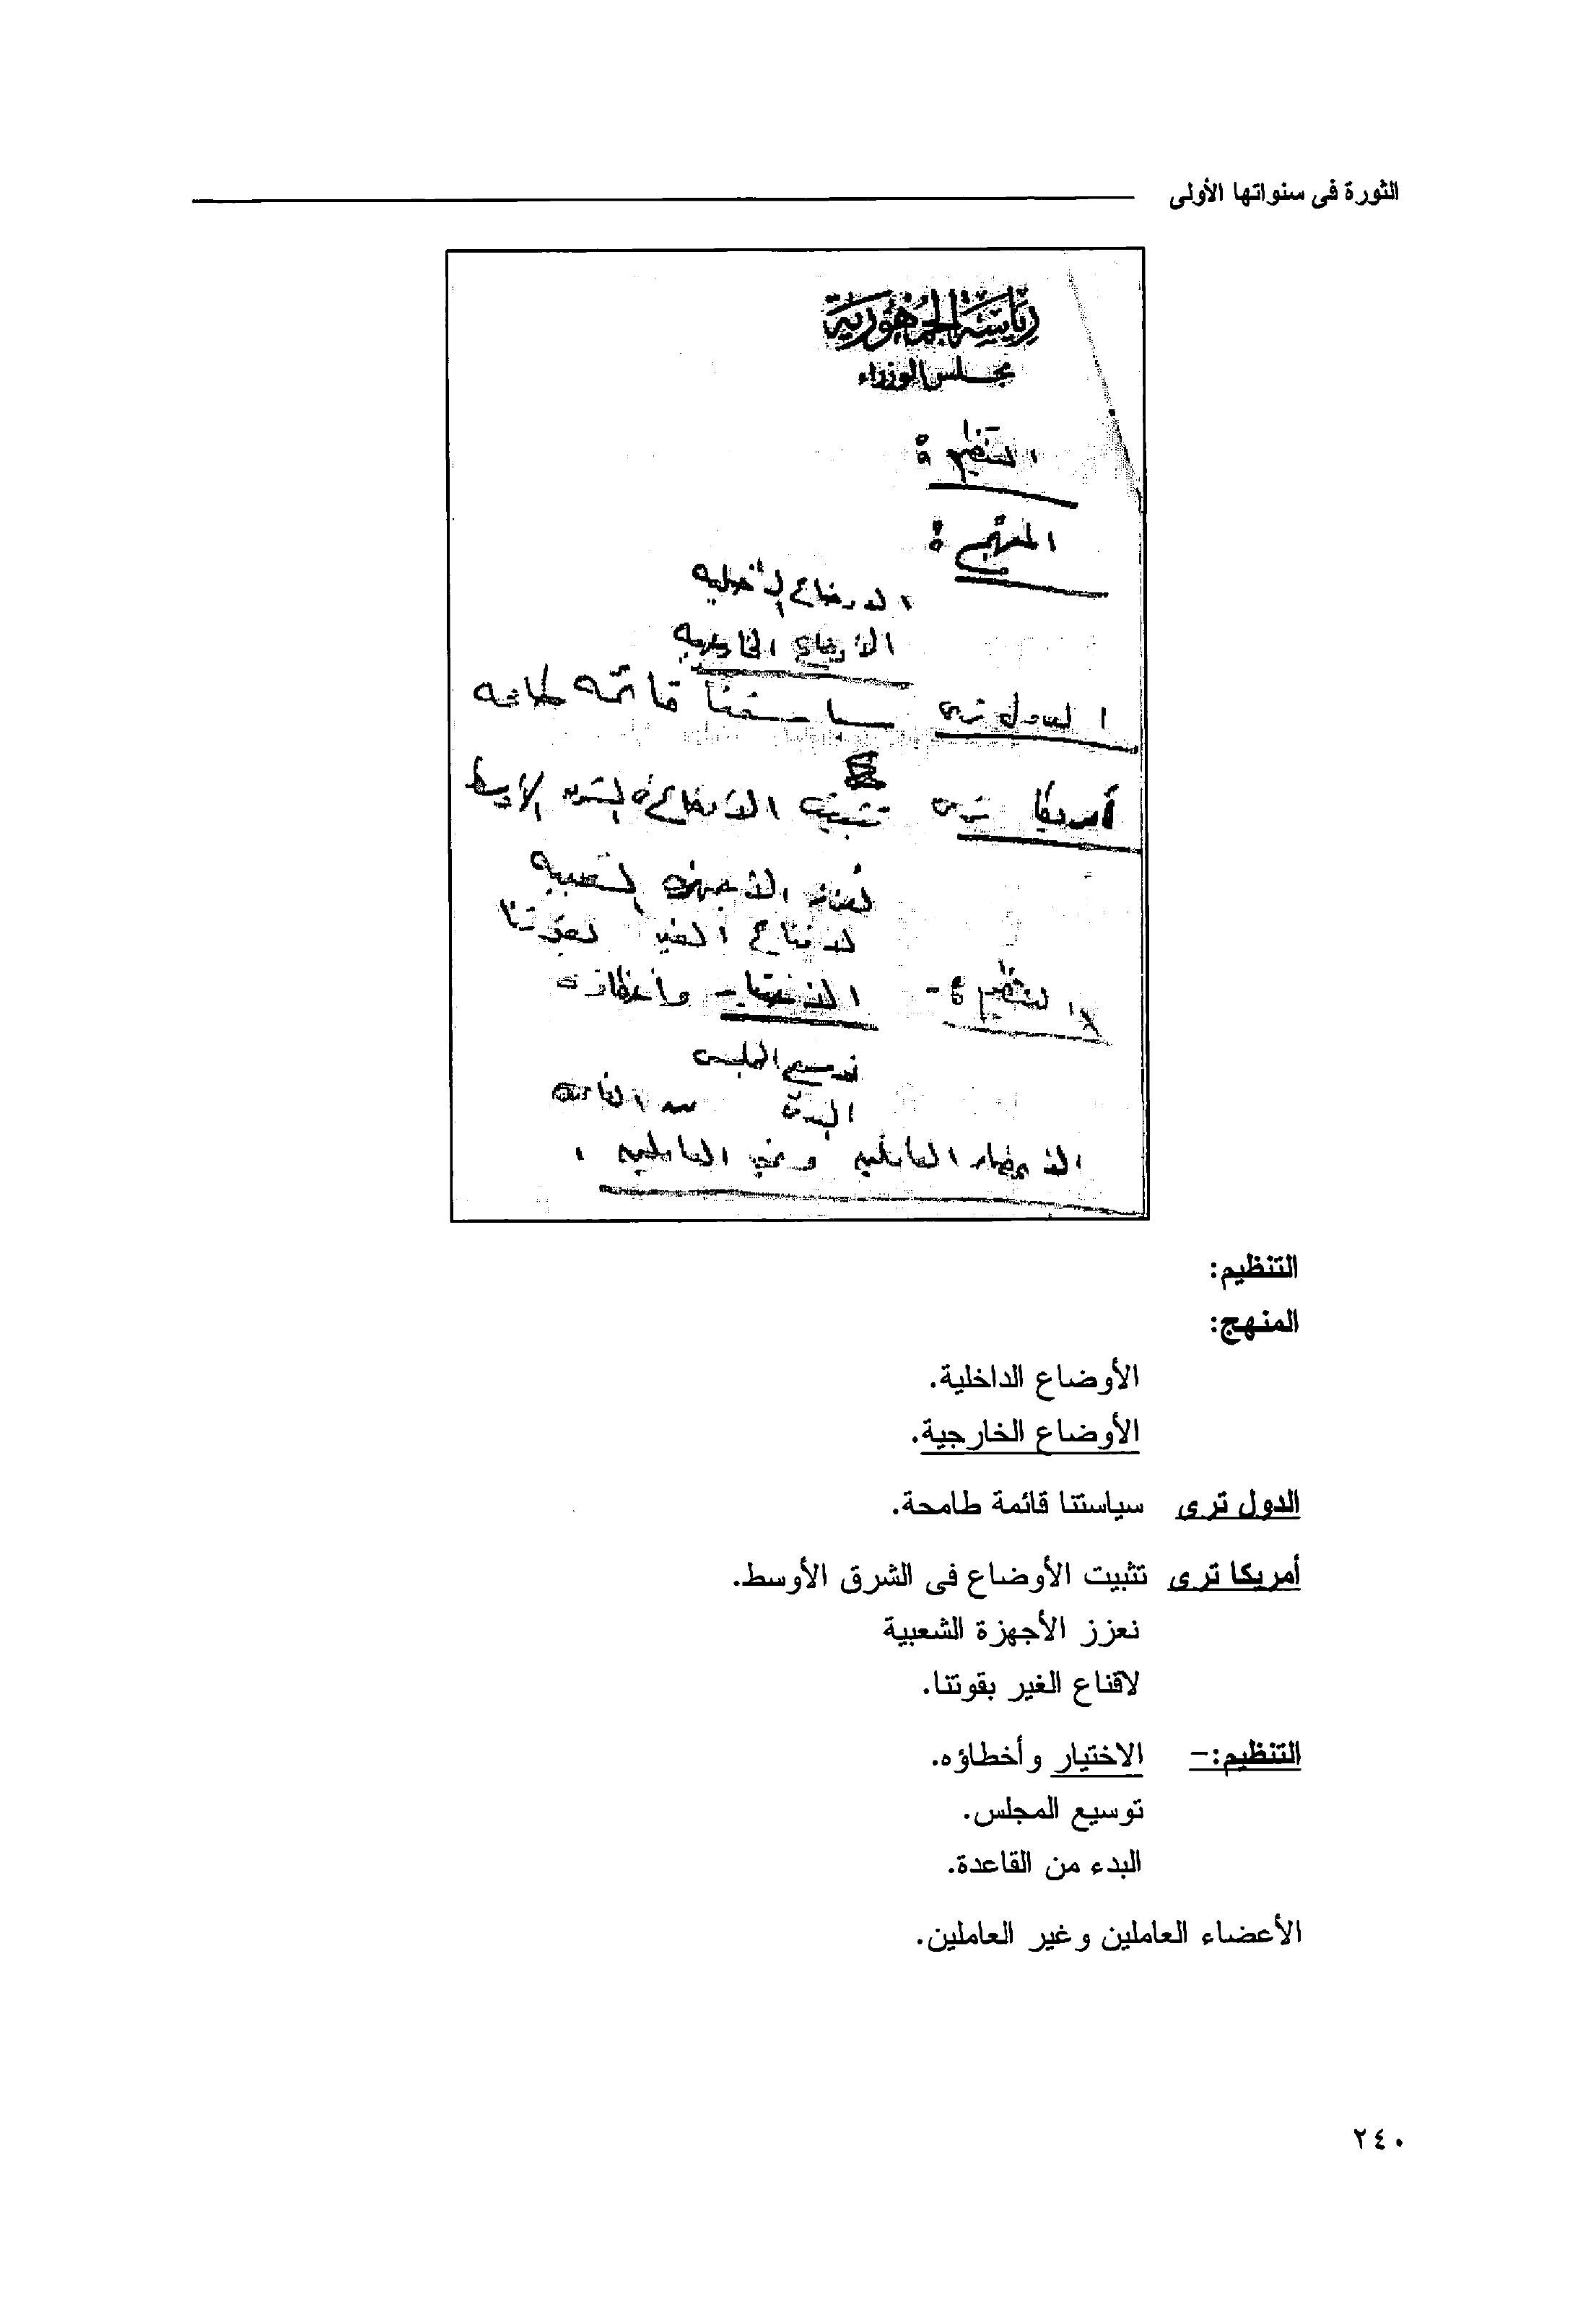 الثورة فى سنواتها الأولى
رئاسة الجمهورية
مجلس الوزراء
التنظيم :
المنهج :
الأوضاع الداخلية
الأوضاع الخارجية
الدول ترى سياستنا قائمه طامحه
أمريكا ترى تثبيت الأوضاع فى الشرق الأوسط
نعزز الأجهزه الشعبيه
لاقناع الغير بقوتنا
التنظيم :- الاختيار - وأخطاؤه
توسيع المجلس
البدء من القاعده
الأعضاء العاملين وغير العاملين .
التنظيم:
المنهج:
الأوضاع الداخلية.
الأوضاع الخارجية.
الدول ترى سياستنا قائمة طامحة.
أمريكا ترى تثبيت الأوضاع فى الشرق الأوسط.
نعزز الأجهزة الشعبية
لاقناع الغير بقوتنا.
التنظيم:- الاختيار وأخطاؤه.
توسيع المجلس.
البدء من القاعدة.
الأعضاء العاملين وغير العاملين.
٢٤٠